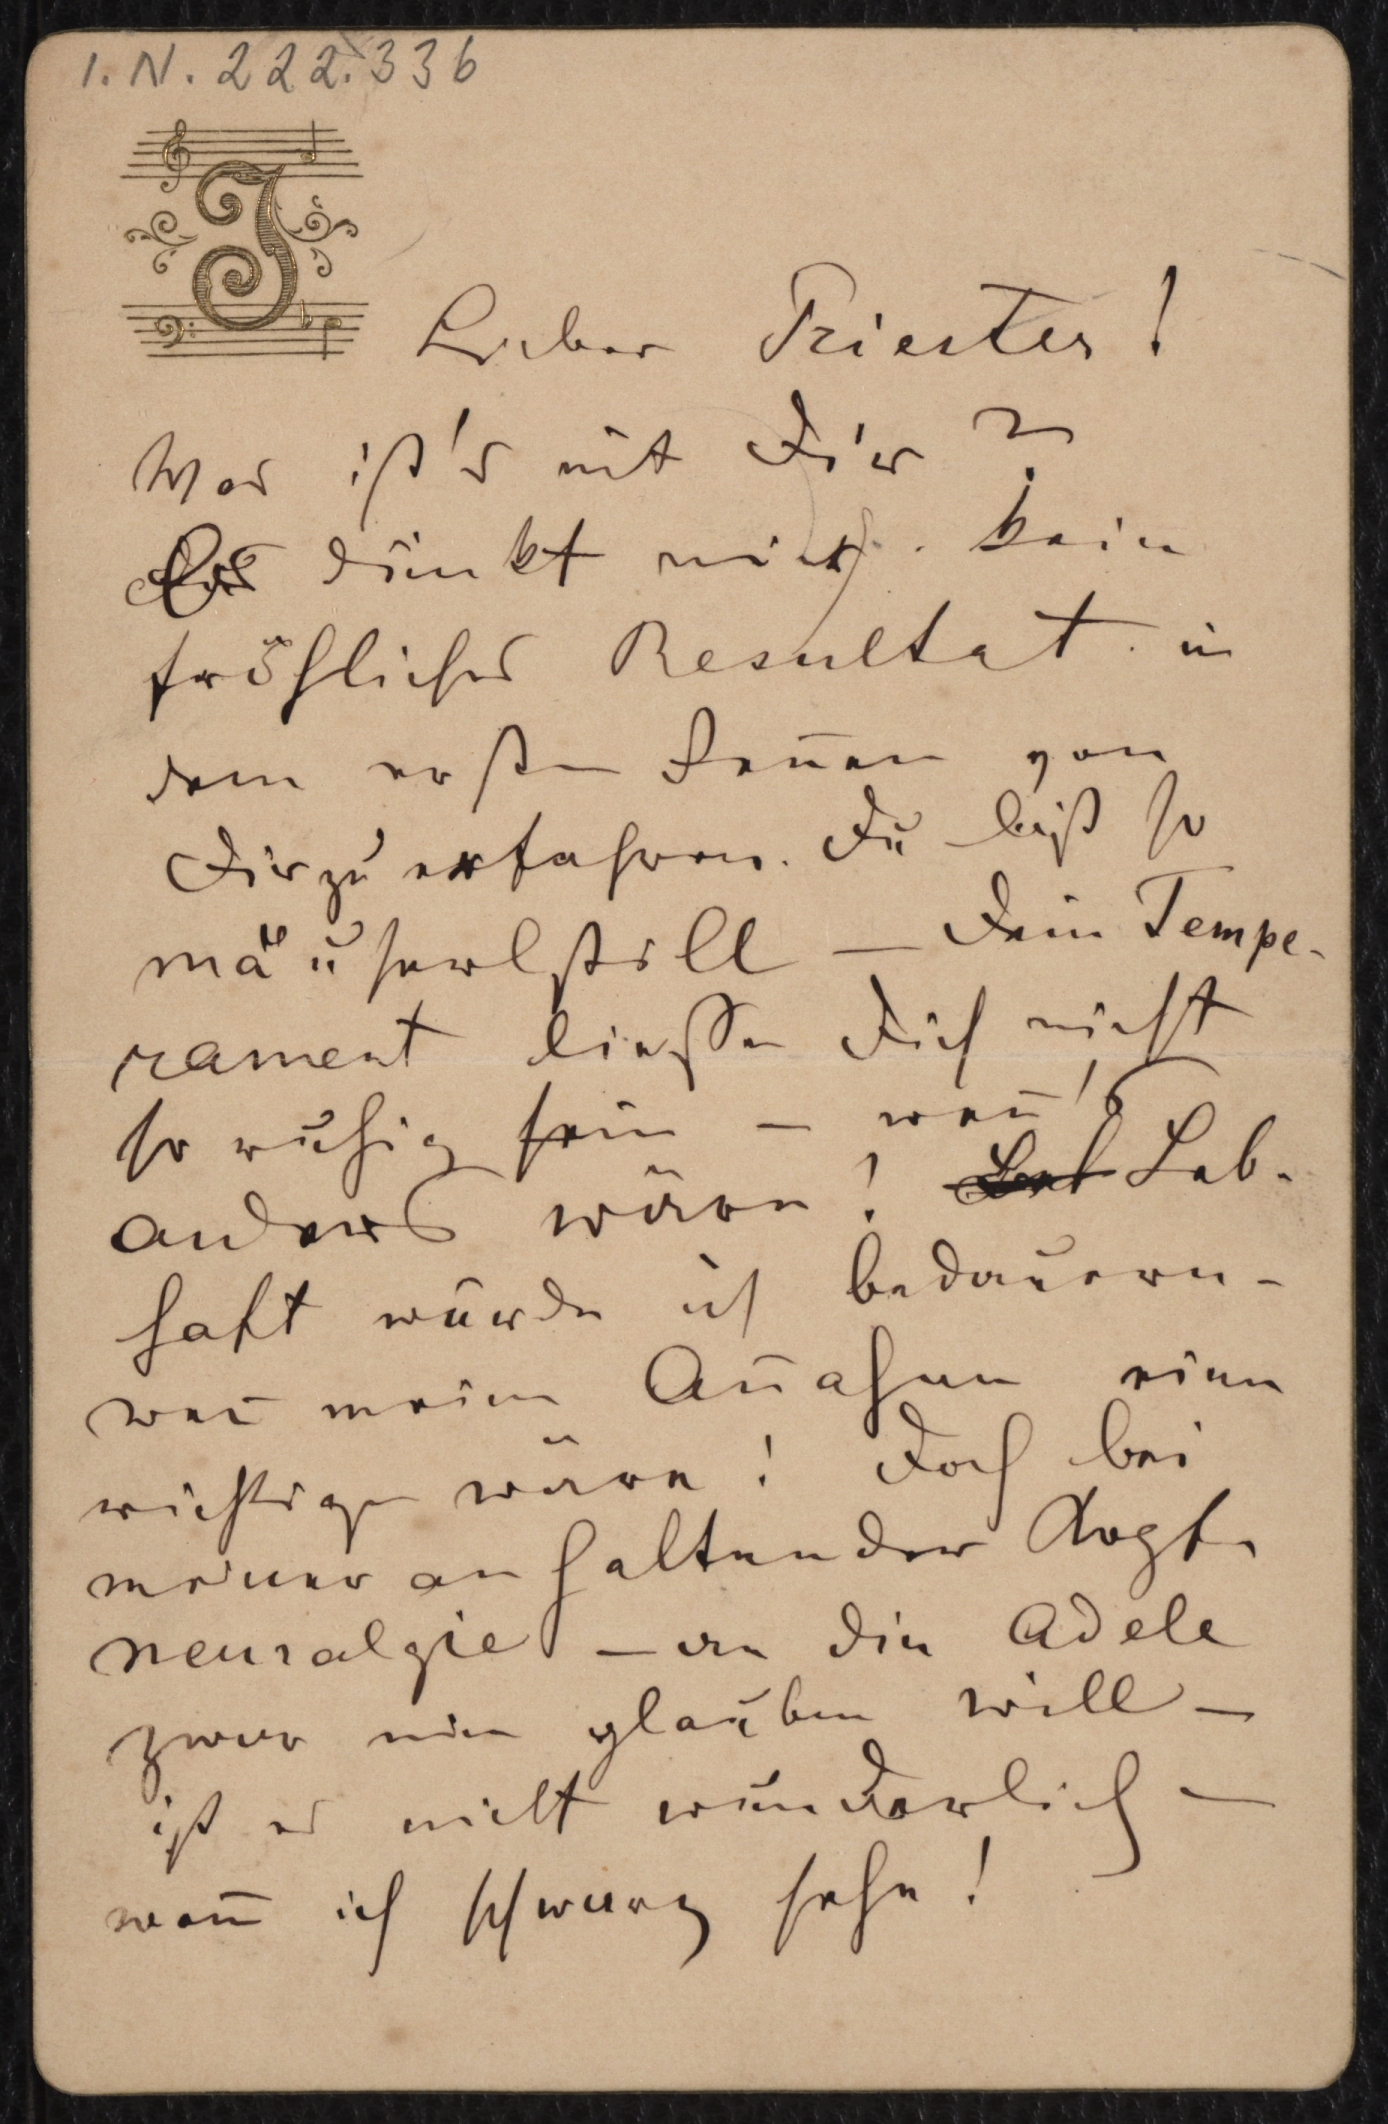 I. N. 222.336
J
Lieber Priester!
Was ist's mit Dir?
Es dünkt mich kein
fröhliches Resultat in
dem ersten Rennen von
Dir zu erfahren. Du bist so
mäuserlstill — Dein Tempe-
rament liesse Dich nicht
so ruhig sein — wen̅'s
anders wäre! Leb-
haft würde ich bedauern —
wen̅ meine An̅ahme eine
richtige wäre! Doch bei
meiner anhaltenden
neuralgie — an die Adele
zwar nie glauben will —
ist es nicht wunderlich —
wen̅ ich schwarz sehe!